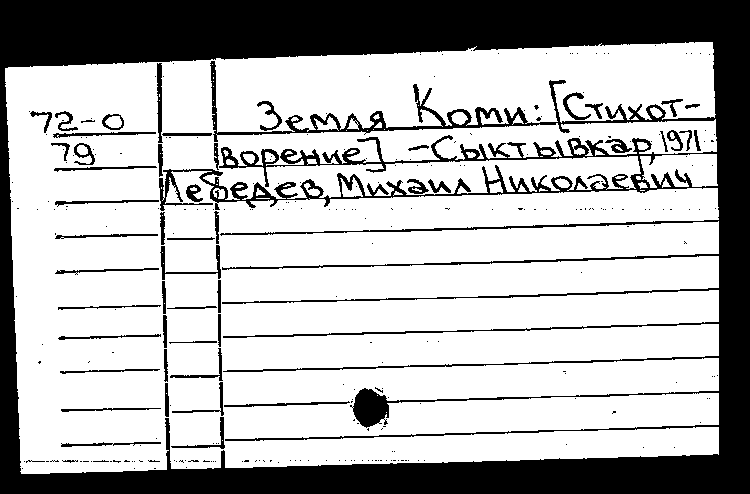 72-0 Земля Коми: [Стихот-
79 ворение] - Сыктывкар, 1971
Лебедев, Михаил Николаевич